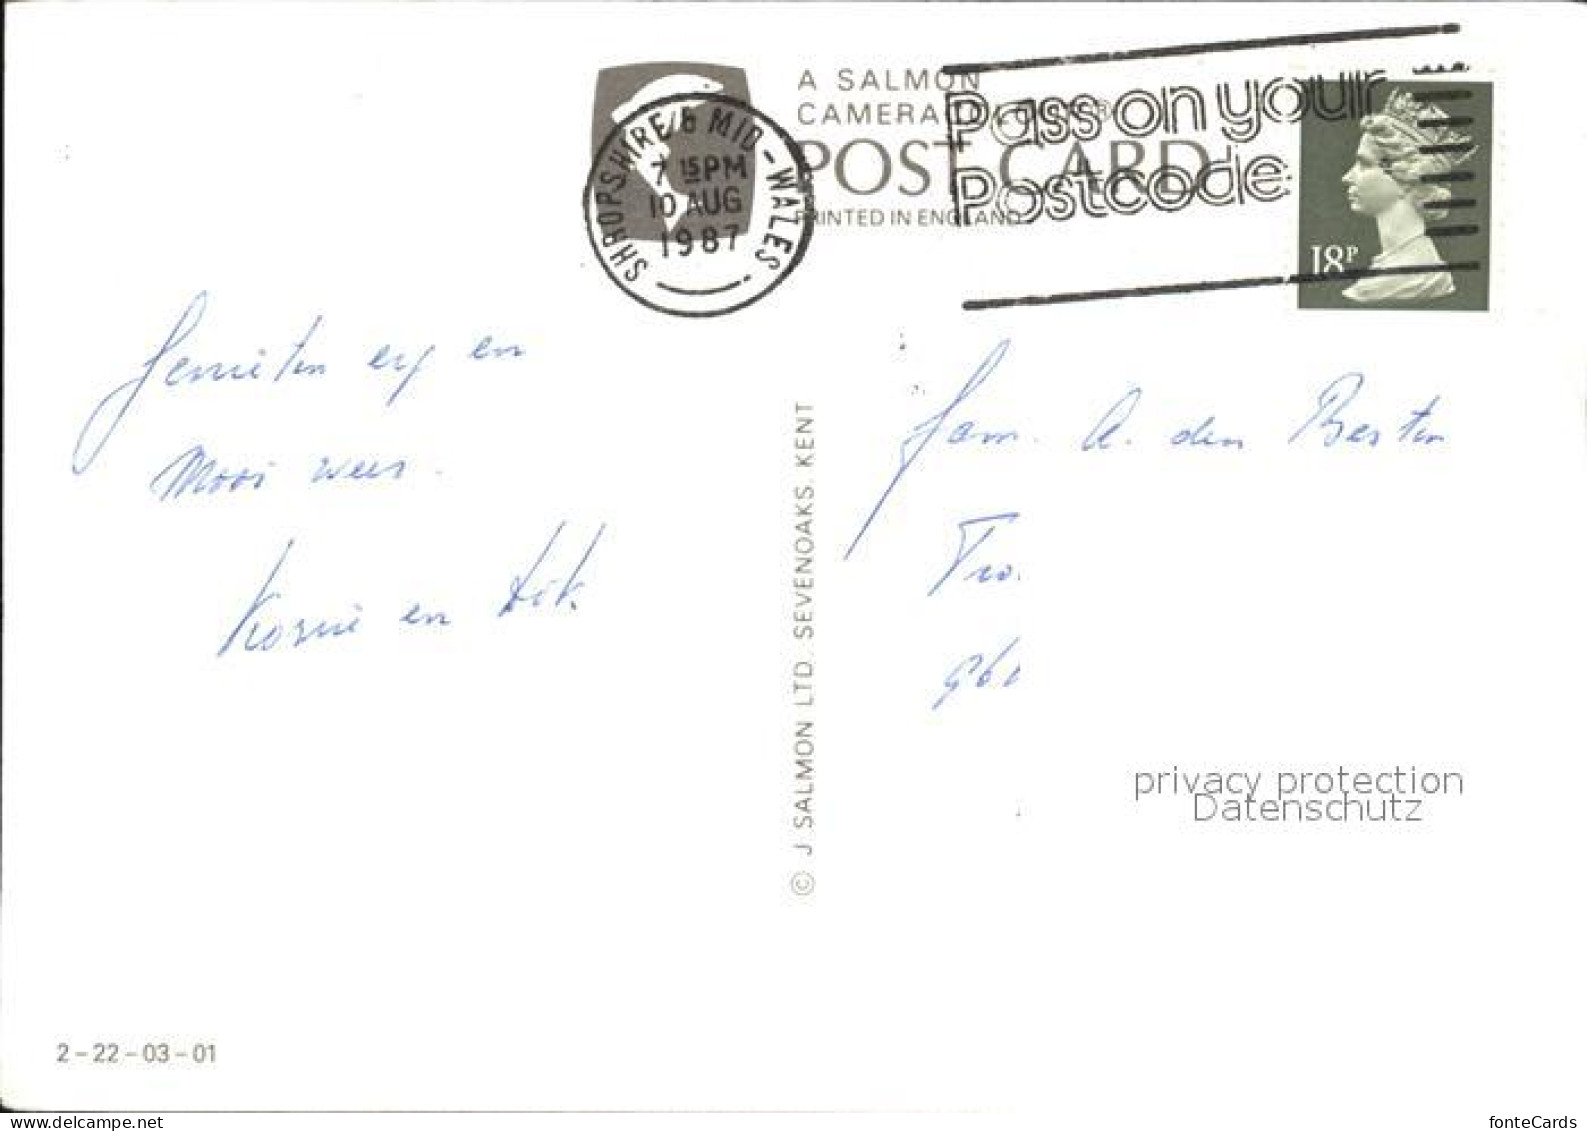 A SALMON
CAMERACOLOUR®
POST CARD
PRINTED IN ENGLAND
SHROPSHIRE & MID-WALES
7 15PM
10 AUG
1987
Pass on your
Postcode
18P
Genieten erg en
Mooi weer.
en Dik
Fam. A. den Besten
© J SALMON LTD. SEVENOAKS. KENT
privacy protection
Datenschutz
2-22-03-01
fonteCards